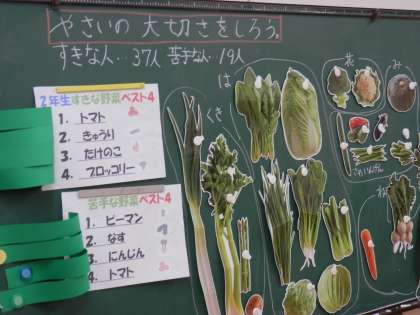 やさいの 大切さをしろう。
すきな人…37人 苦手な人…19人
2年生すきな野菜ベスト4
1. トマト
2. きゅうり
3. たけのこ
4. ブロッコリー
苦手な野菜ベスト4
1. ピーマン
2. なす
3. にんじん
4. トマト
は
くき
花
み
さやいんげん
ね